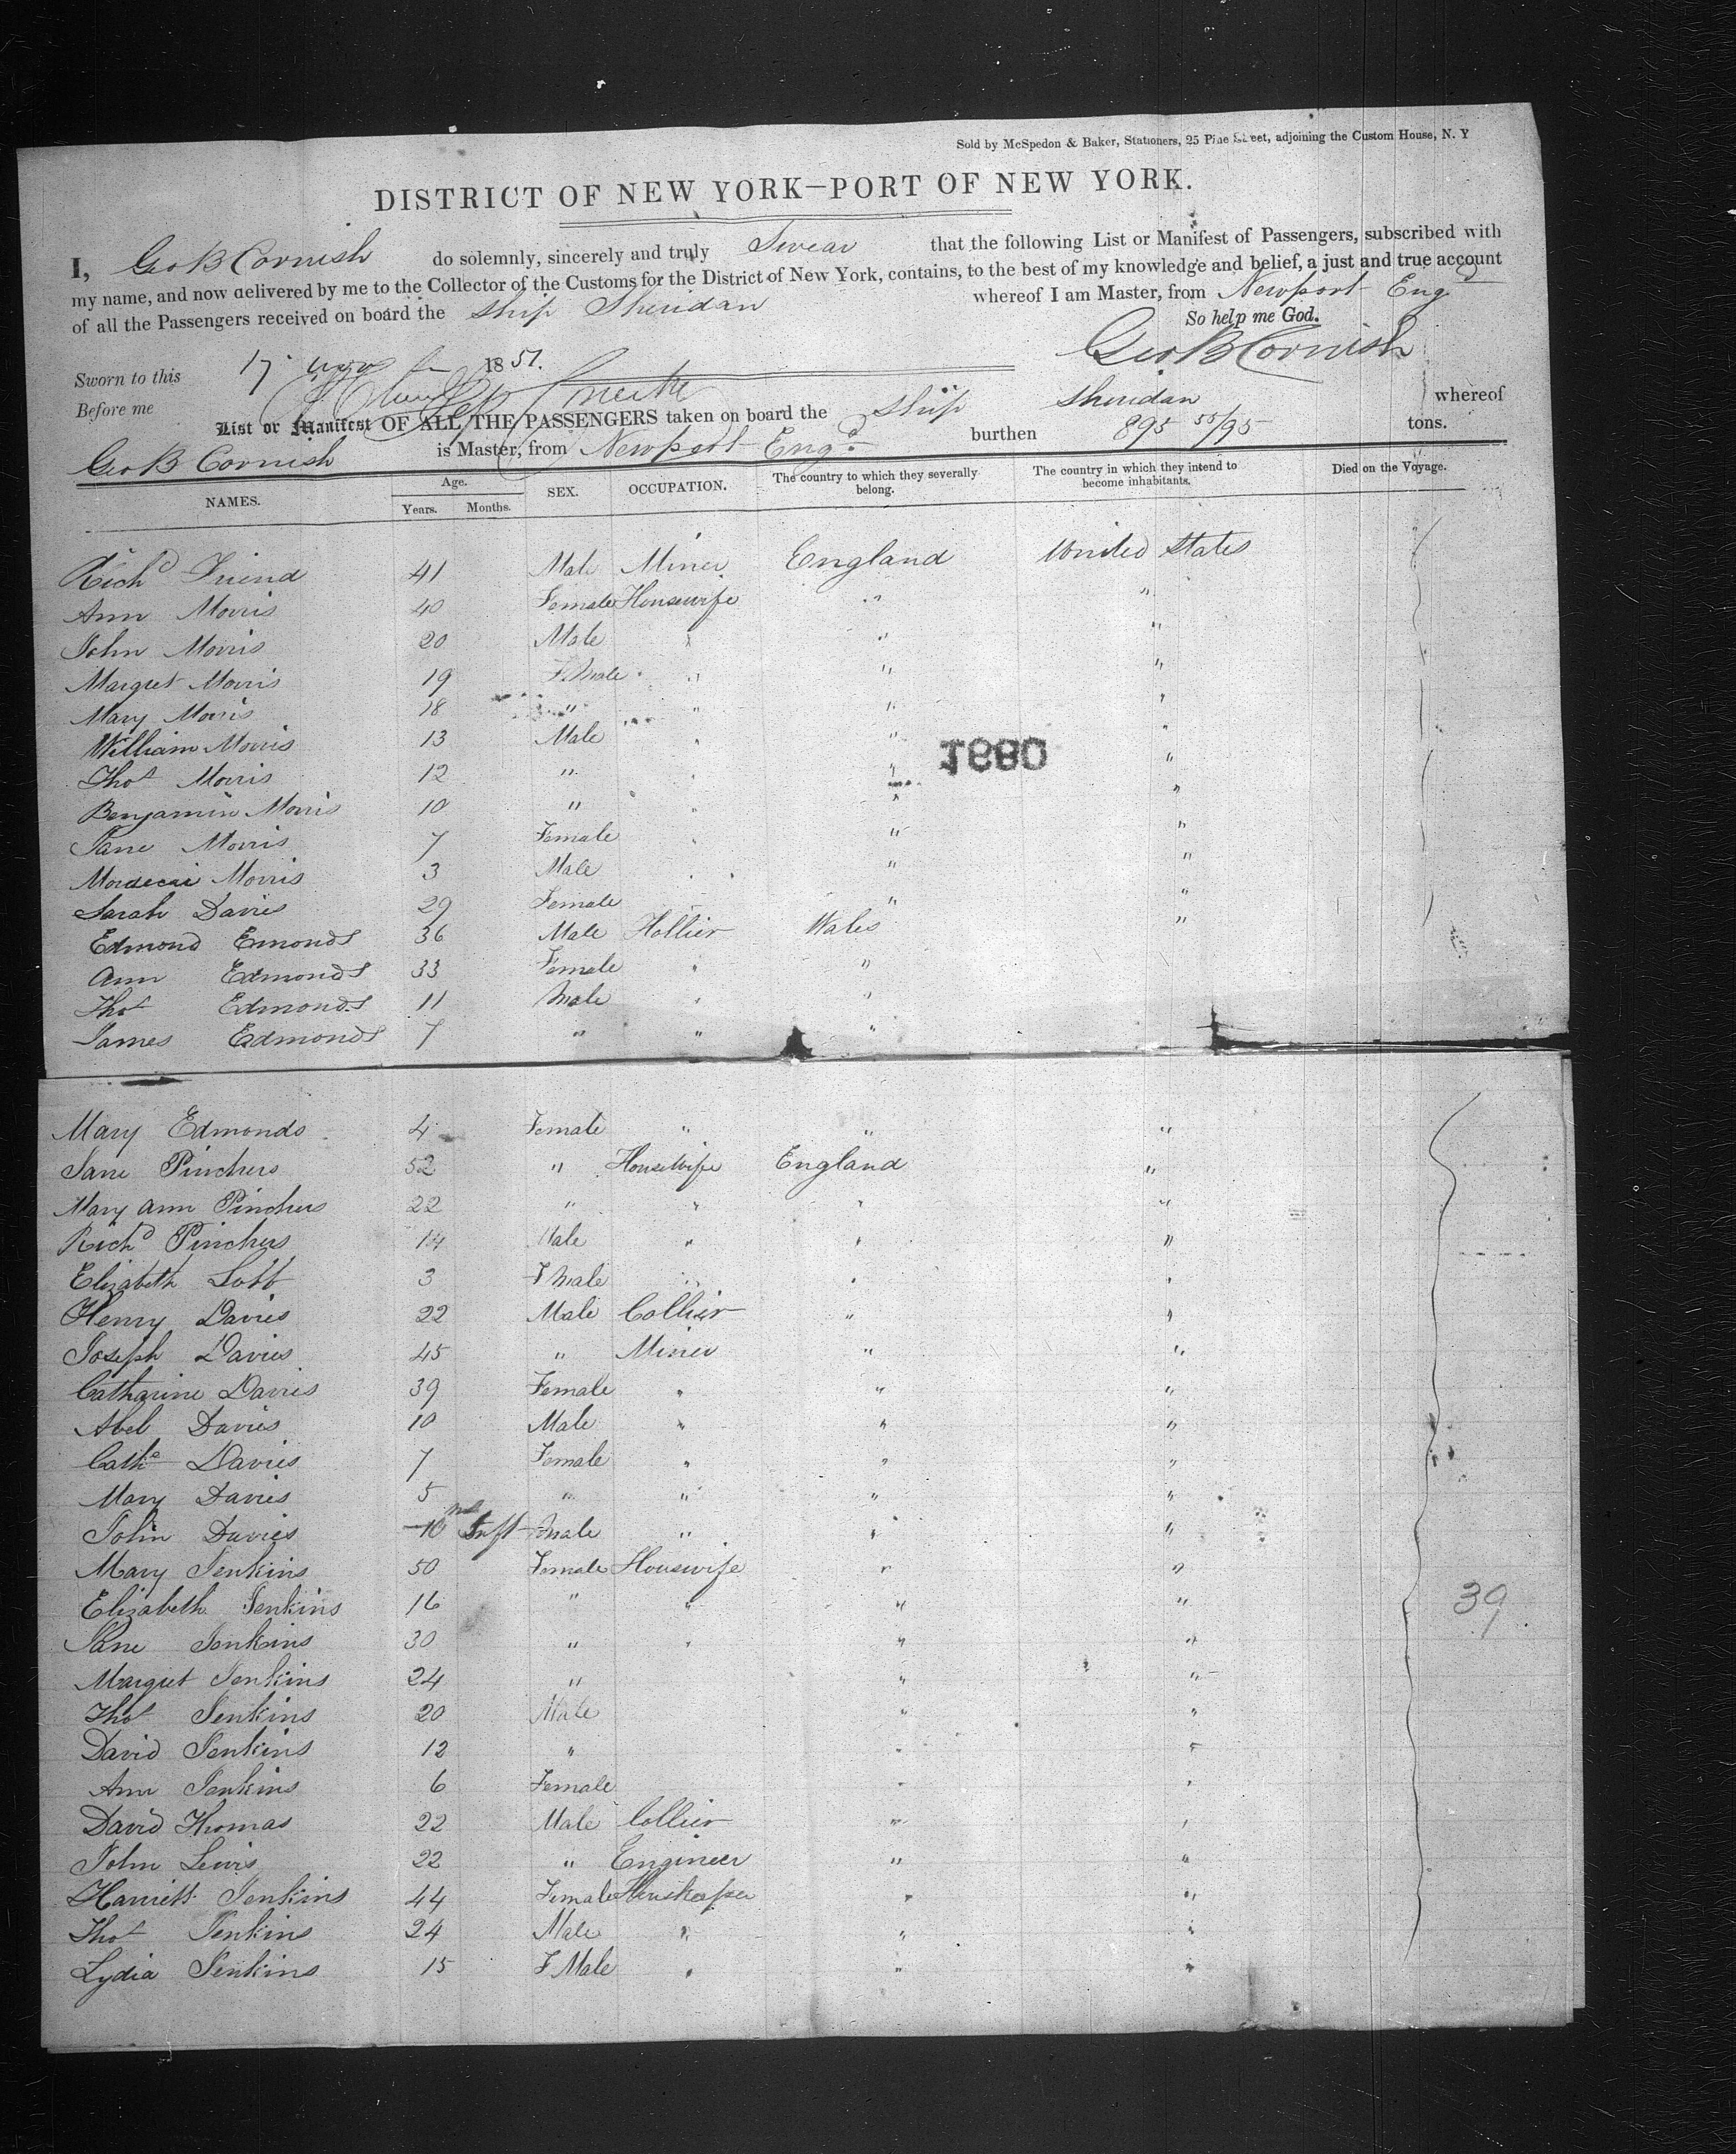 Sold by McSpedon & Baker, Stationers, 25 Pine Street, adjoining the Custom House, N. Y
DISTRICT OF NEW YORK—PORT OF NEW YORK.
I, Geo B Cornish do solemnly, sincerely and truly Swear that the following List or Manifest of Passengers, subscribed with
my name, and now delivered by me to the Collector of the Customs for the District of New York, contains, to the best of my knowledge and belief, a just and true account
of all the Passengers received on board the Ship Sheridan whereof I am Master, from Newport Engd
So help me God.
Geo B Cornish
Sworn to this 17 1851.
Before me
List or Manifest OF ALL THE PASSENGERS taken on board the Ship Sheridan whereof
Geo B Cornish is Master, from Newport Engd burthen 895 55/95 tons.
NAMES. Age. Years. Months. SEX. OCCUPATION. The country to which they severally belong. The country in which they intend to become inhabitants. Died on the Voyage.
Richd Friend 41 Male Miner England United States
Ann Morris 40 Female Housewife " "
John Morris 20 Male " " "
Margret Morris 19 F.Male " " "
Mary Morris 18 " " " "
William Morris 13 Male " " "
1880
Thos Morris 12 " " " "
Benjamin Morris 10 " " " "
Jane Morris 7 Female " " "
Mordecai Morris 3 Male " " "
Sarah Davies 29 Female " "
Edmond Emonds 36 Male Hollier Wales "
Ann Edmonds 33 Female " "
Thos Edmonds 11 Male " "
James Edmonds 7 " " "
Mary Edmonds 4 Female " " "
Jane Pinchers 52 " HouseWife England "
Mary Ann Pinchers 22 " " " "
Richd Pinchers 14 Male " " "
Elizabeth Lott 3 F Male " " "
Henry Davies 22 Male Collier " "
Joseph Davies 45 " Miner " "
Catharine Davies 39 Female " " "
Abel Davies 10 Male " " "
Cathe Davies 7 Female " " "
Mary Davies 5 " " " "
John Davies 10 Inft Male " " "
Mary Jenkins 50 Female Housewife " "
Elizabeth Jenkins 16 " " " "
39
Jane Jenkins 30 " " " "
Margret Jenkins 24 " " "
Thos Jenkins 20 Male " "
David Jenkins 12 " " "
Ann Jenkins 6 Female " "
David Thomas 22 Male Collier " "
John Lewis 22 " Engineer " "
Harriett Jenkins 44 Female " "
Thos Jenkins 24 Male " " "
Lydia Jenkins 15 F Male " " "